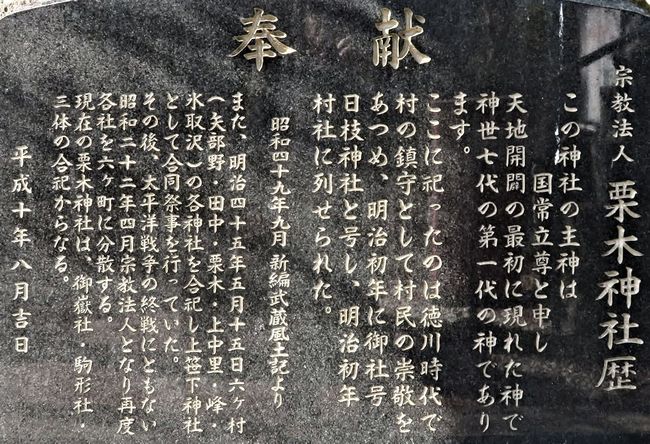 奉献
宗教法人 栗木神社歴
この神社の主神は
国常立尊と申し
天地開闢の最初に現れた神で
神世七代の第一代の神であり
ます。
ここに祀ったのは徳川時代で
村の鎮守として村民の崇敬を
あつめ、明治初年に御社号
日枝神社と号し、明治初年
村社に列せられた。
昭和四十九年九月 新編武蔵風土記より
また、明治四十五年五月十五日六ヶ村
(矢部野・田中・栗木・上中里・峰・
氷取沢)の各神社を合祀し上笹下神社
として合同祭事を行っていた。
その後、太平洋戦争の終戦にともない
昭和二十二年四月宗教法人となり再度
各社を六ヶ町に分散する。
現在の栗木神社は、御嶽社・駒形社・
三体の合祀からなる。
平成十年八月吉日